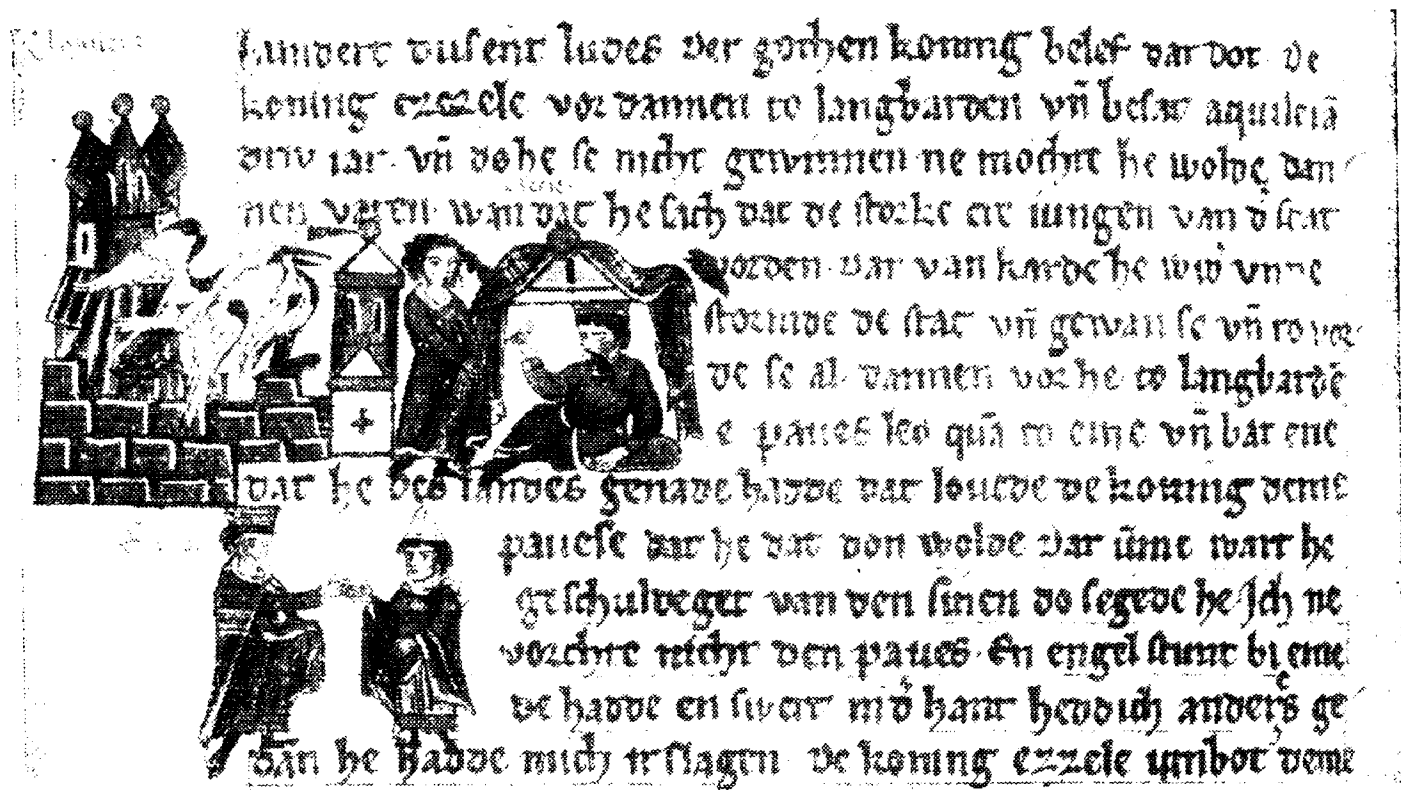 hundert dusent ludes der gothen koning belef dar dot de
koning ezzele vor dannen to langbarden vñ besat aquileiā
driv iar. vñ do he se nicht gewinnen ne mochte he wolde dan
nen varen wan dat he sich dat de storke ere iungen van d stat
vorden. dar van karde he wid vnde
stormde de stat vñ gewan se vñ to vor
de se al. dannen vor he to langbardē
e paues leo quā to eme vñ bat ene
dat he des landes genade hadde dat louede de koning deme
pauese dat he dat don wolde dar ūme wart he
geschuldeget van den sinen do segede he Ich ne
vorchte nicht den paues. En engel stunt bi eme
de hadde en swert in d hant hedd ich anders ge
dan he hadde mich irslagen. de koning ezzele untbot deme